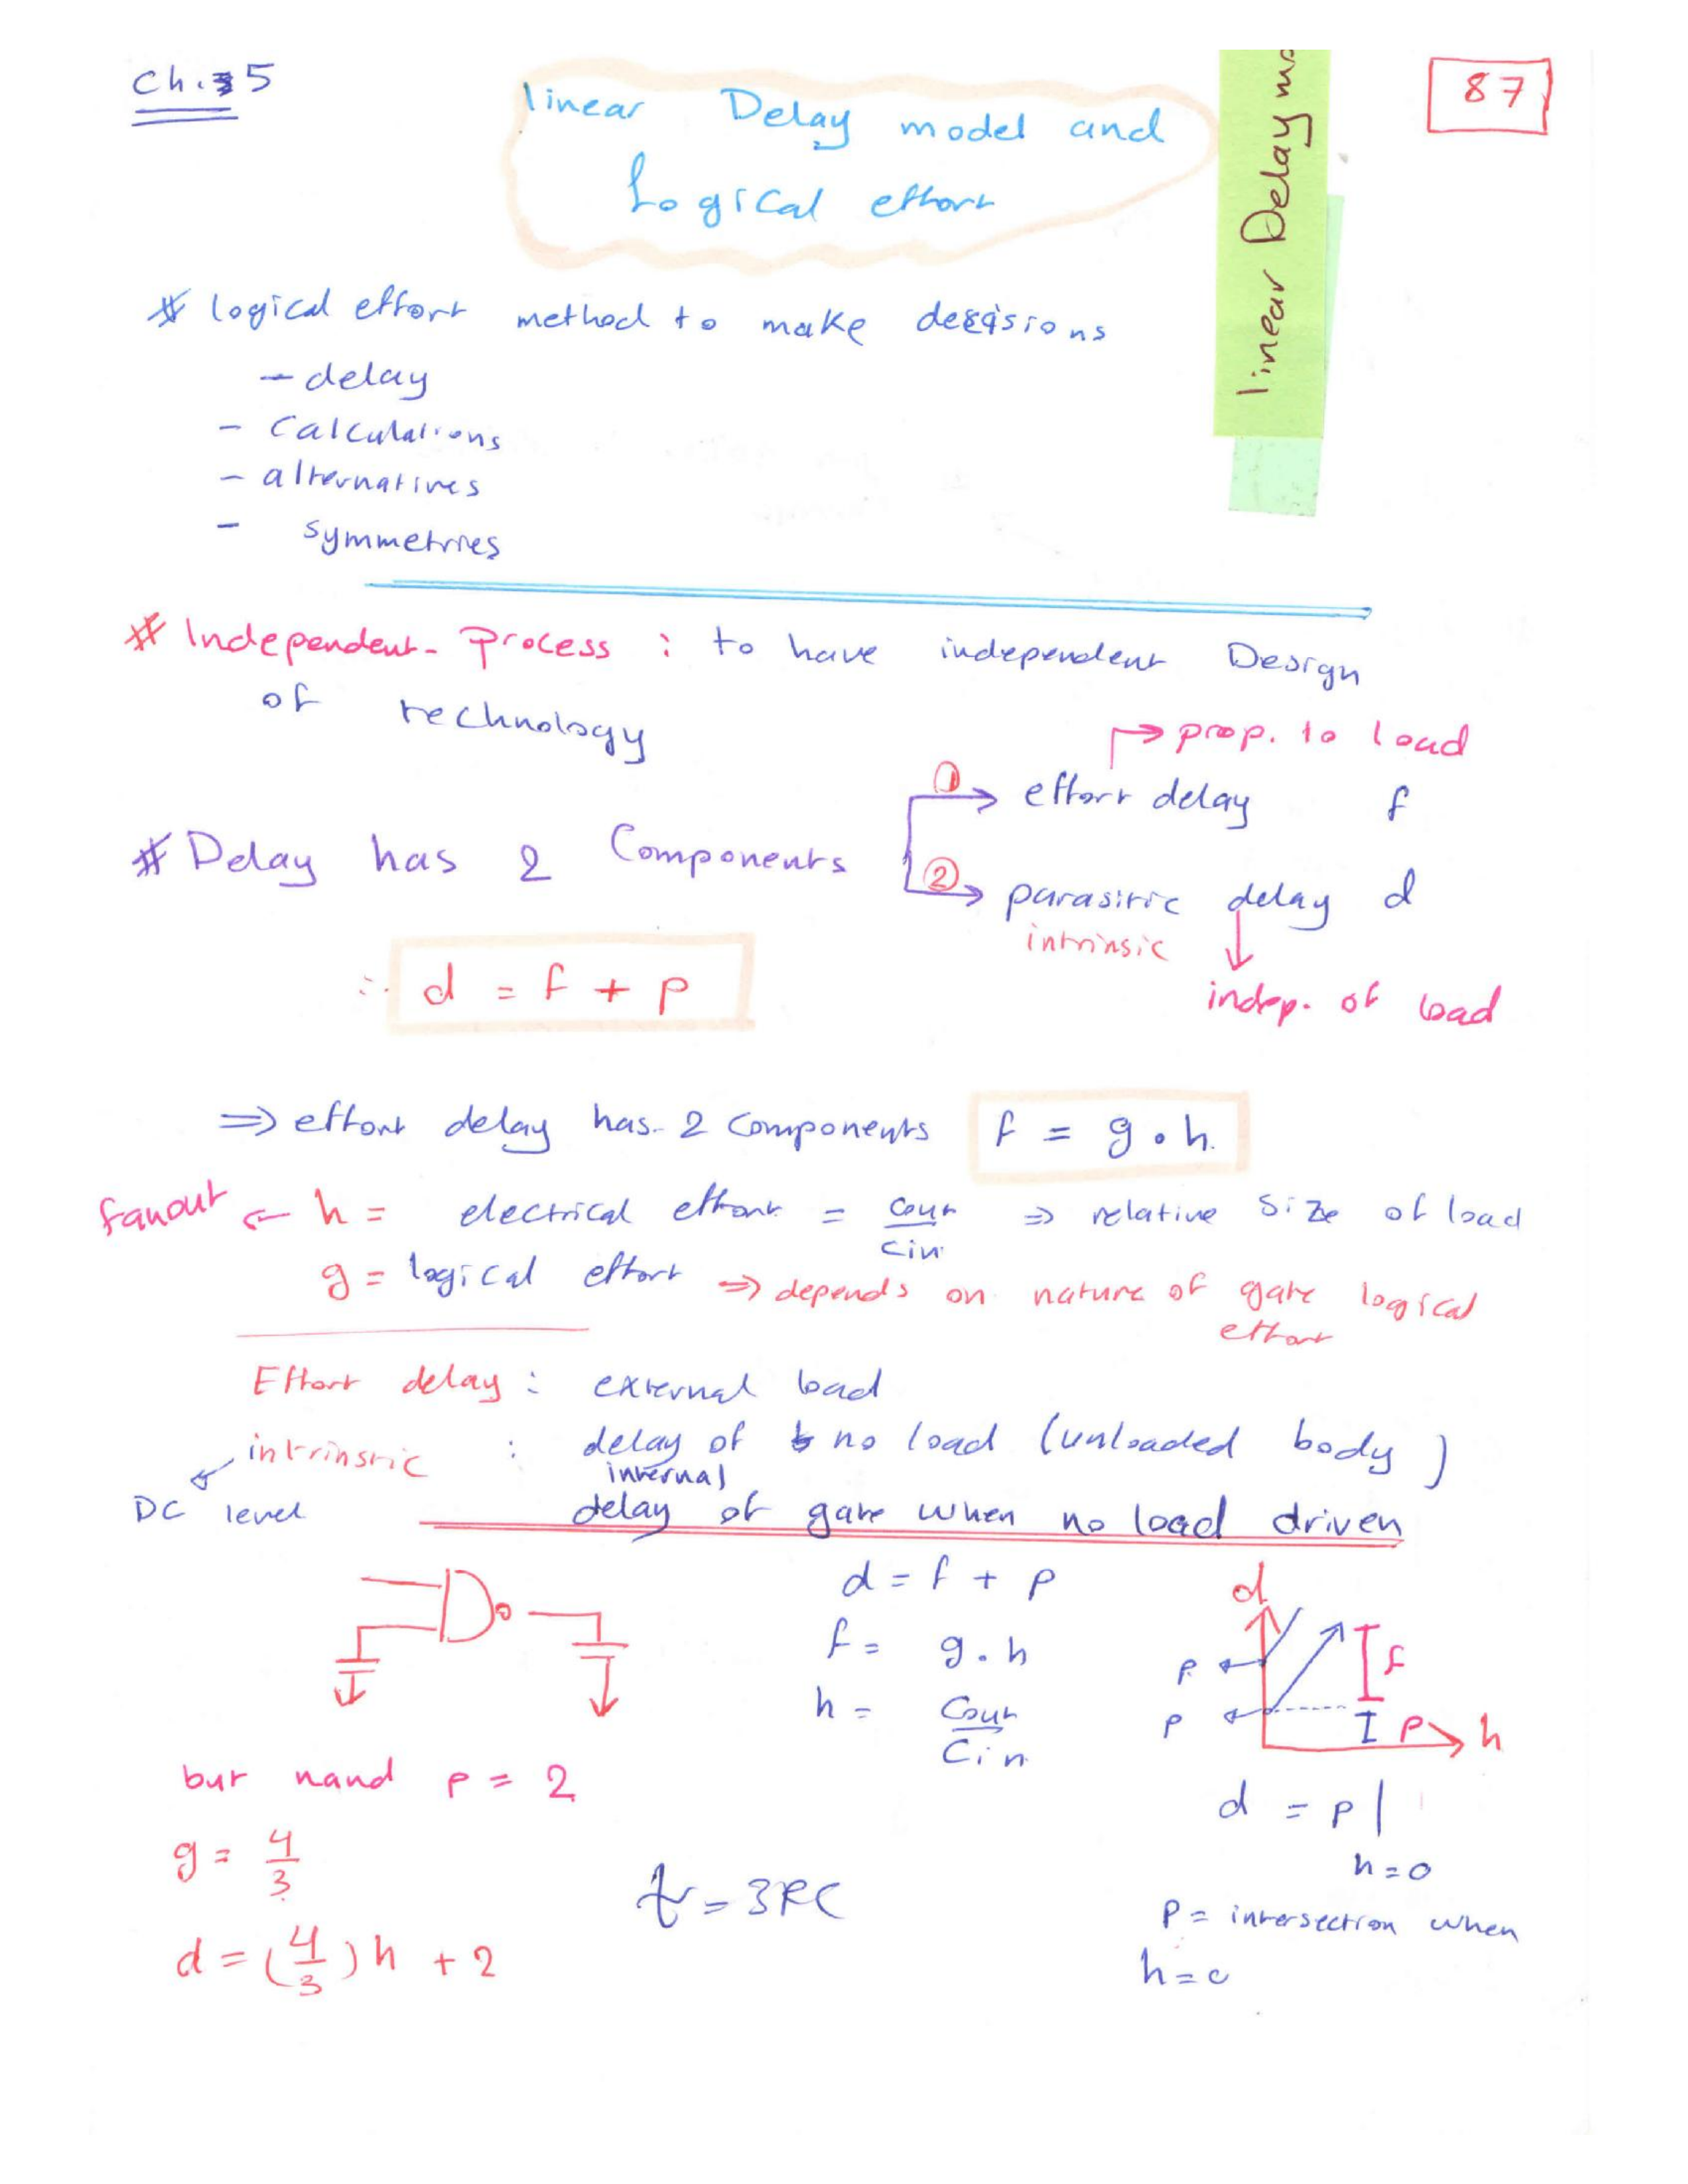 Ch. 5
87
linear Delay model and
Logical effort
linear Delay mo
# logical effort method to make decisions
- delay
- Calculations
- alternatives
- symmetries
# Independent- Process : to have independent Design
of technology
→ prop. to load
① → effort delay f
# Delay has 2 Components
② → parasitic delay d
intrinsic
indep. of load
∴ d = f + p
⇒ effort delay has 2 Components f = g . h
fanout ← h = electrical effort = Cout / Cin ⇒ relative Size of load
g = logical effort ⇒ depends on nature of gate logical
effort
Effort delay : external load
intrinsric : delay of no load (unloaded body)
DC level
internal
delay of gate when no load driven
d = f + p
f = g . h
h = Cout / Cin
d
f
p
p
p
h
but nand p = 2
g = 4/3
d = (4/3) h + 2
= 3RC
d = p |
h = 0
P = intersection when
h = c